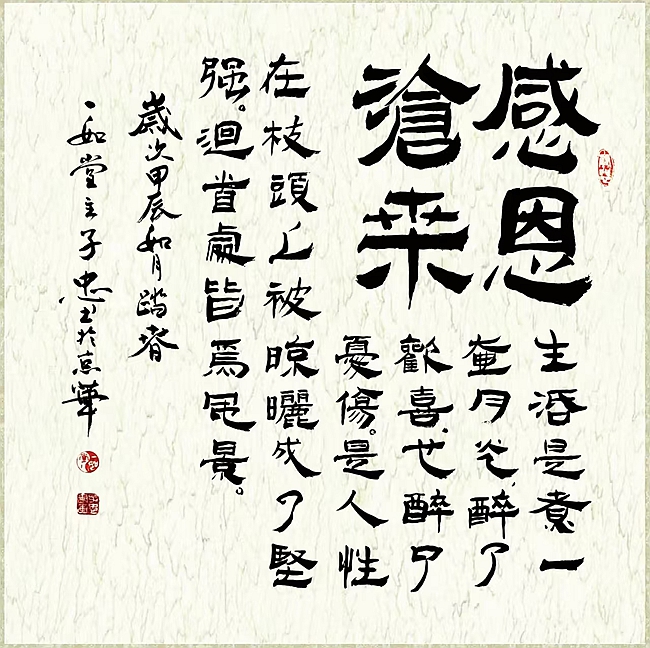 感恩
滄桒
生活是煮一
壺月光、醉了
歡喜、也醉了
憂傷。是人性
在枝頭上被晾曬成了堅
强。迴首處皆爲風景。
歲次甲辰如月踏春
一如堂主子忠书於京華